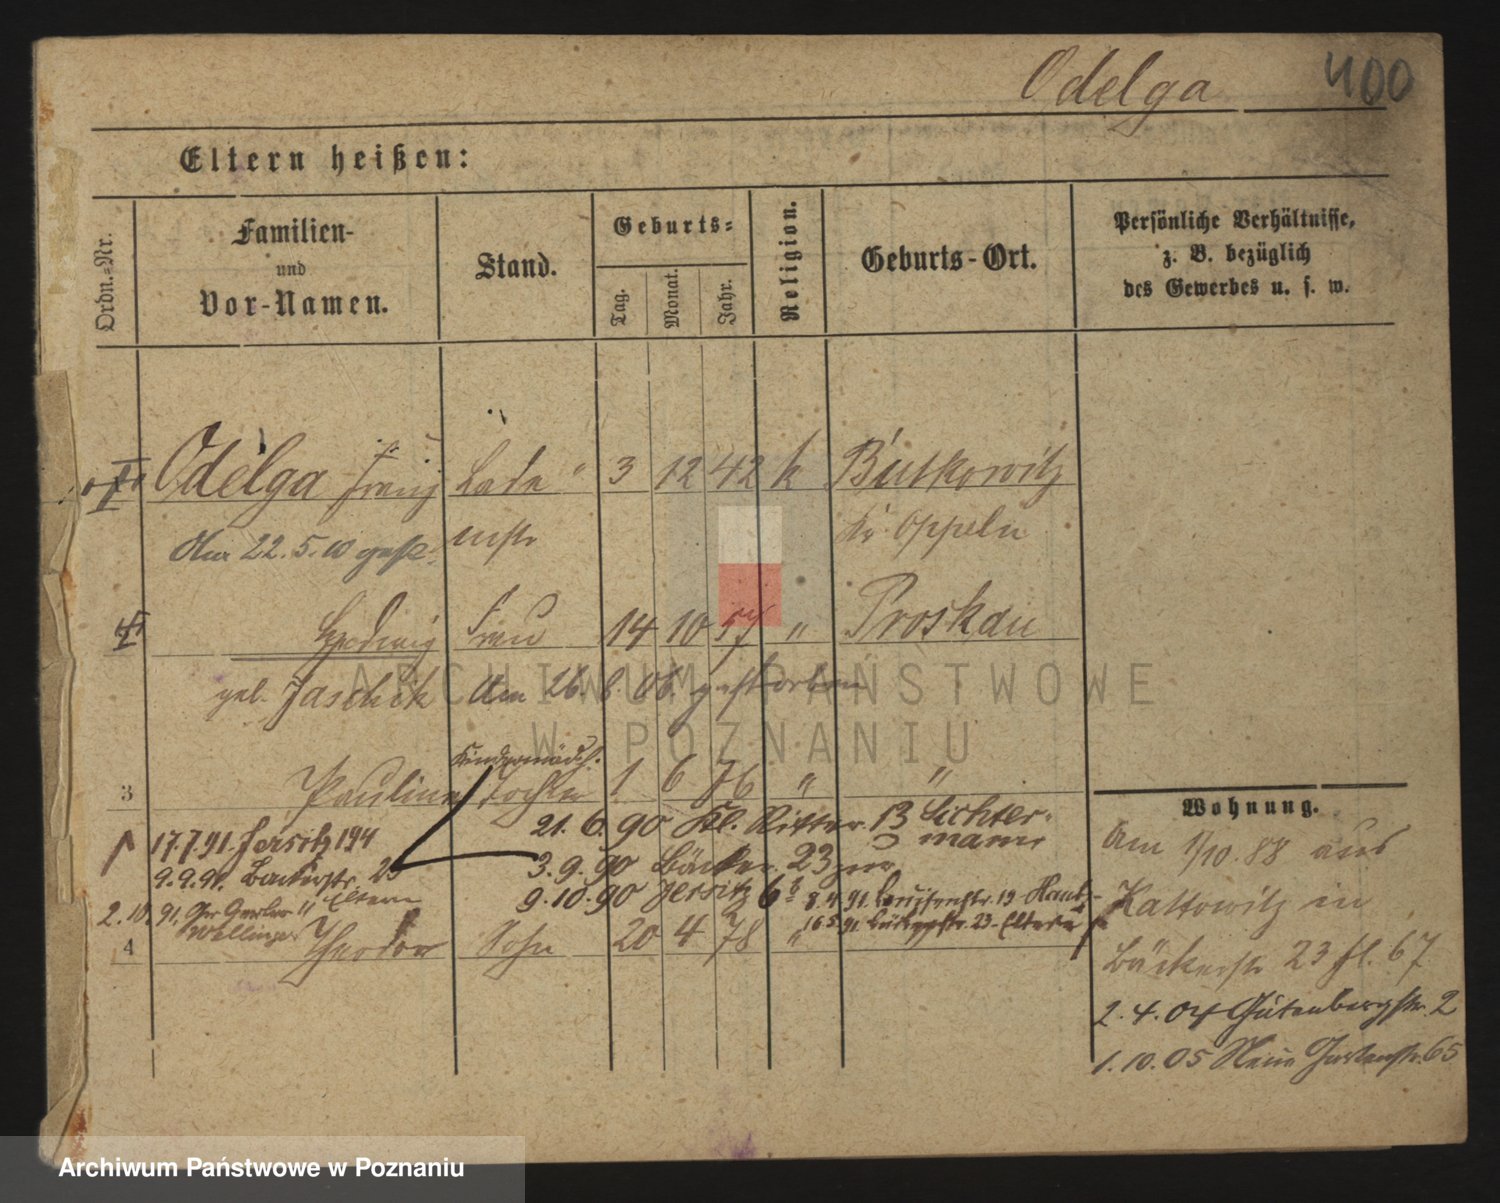 Odelga 400
Eltern heißen:
Ordn.=Nr.
Familien-
und
Vor-Namen.
Stand.
Geburts=
Tag.
Monat.
Jahr.
Religion.
Geburts-Ort.
Persönliche Verhältnisse,
z. B. bezüglich
des Gewerbes u. s. w.
Odelga Franz Lade 3 12 42 k
Am 22.5.10 gest. mstr Kr Oppeln
Hedwig Frau 14 10 57 " Proskau
geb. Jaschik Am 26. 6. 06. gestorben
Kindermädch.
3 Pauline Tochter 1 6 76 " "
17.7.91. Jersitz 194 21. 6. 90 Kl. Ritter. 13 Lichter-
mann
9.9.91. Bäckerstr. 23 3.9.90 Bäcker. 23
Eltern 9.10.90 Jersitz 6
2.10.91. Gr Gerber 11
16.5.91. Bäckerstr. 23. Eltern
4 Theodor Sohn 20 4 78 "
Wohnung.
Am 1/10. 88 aus
Kattowitz in
Bäckerstr 23 fl. 67
2. 4. 04 Gutenbergstr. 2
1. 10. 05 Neue Gartenstr. 65
ARCHIWUM PAŃSTWOWE
W POZNANIU
Archiwum Państwowe w Poznaniu